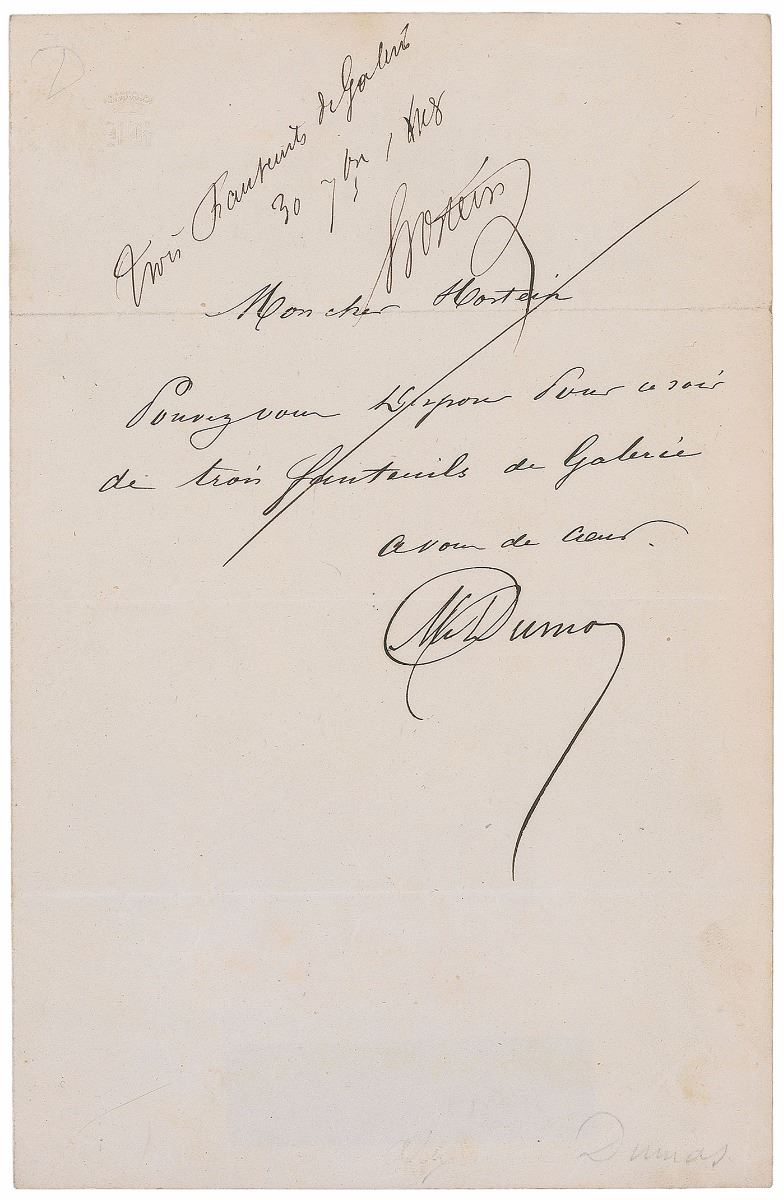 trois Fauteuils de Galerie
30 7bre
Hostein
Mon cher Hostein
Pouvez vous disposer Pour ce soir
de trois fauteuils de Galerie
a vous de cœur.
Alex Dumas
Dumas